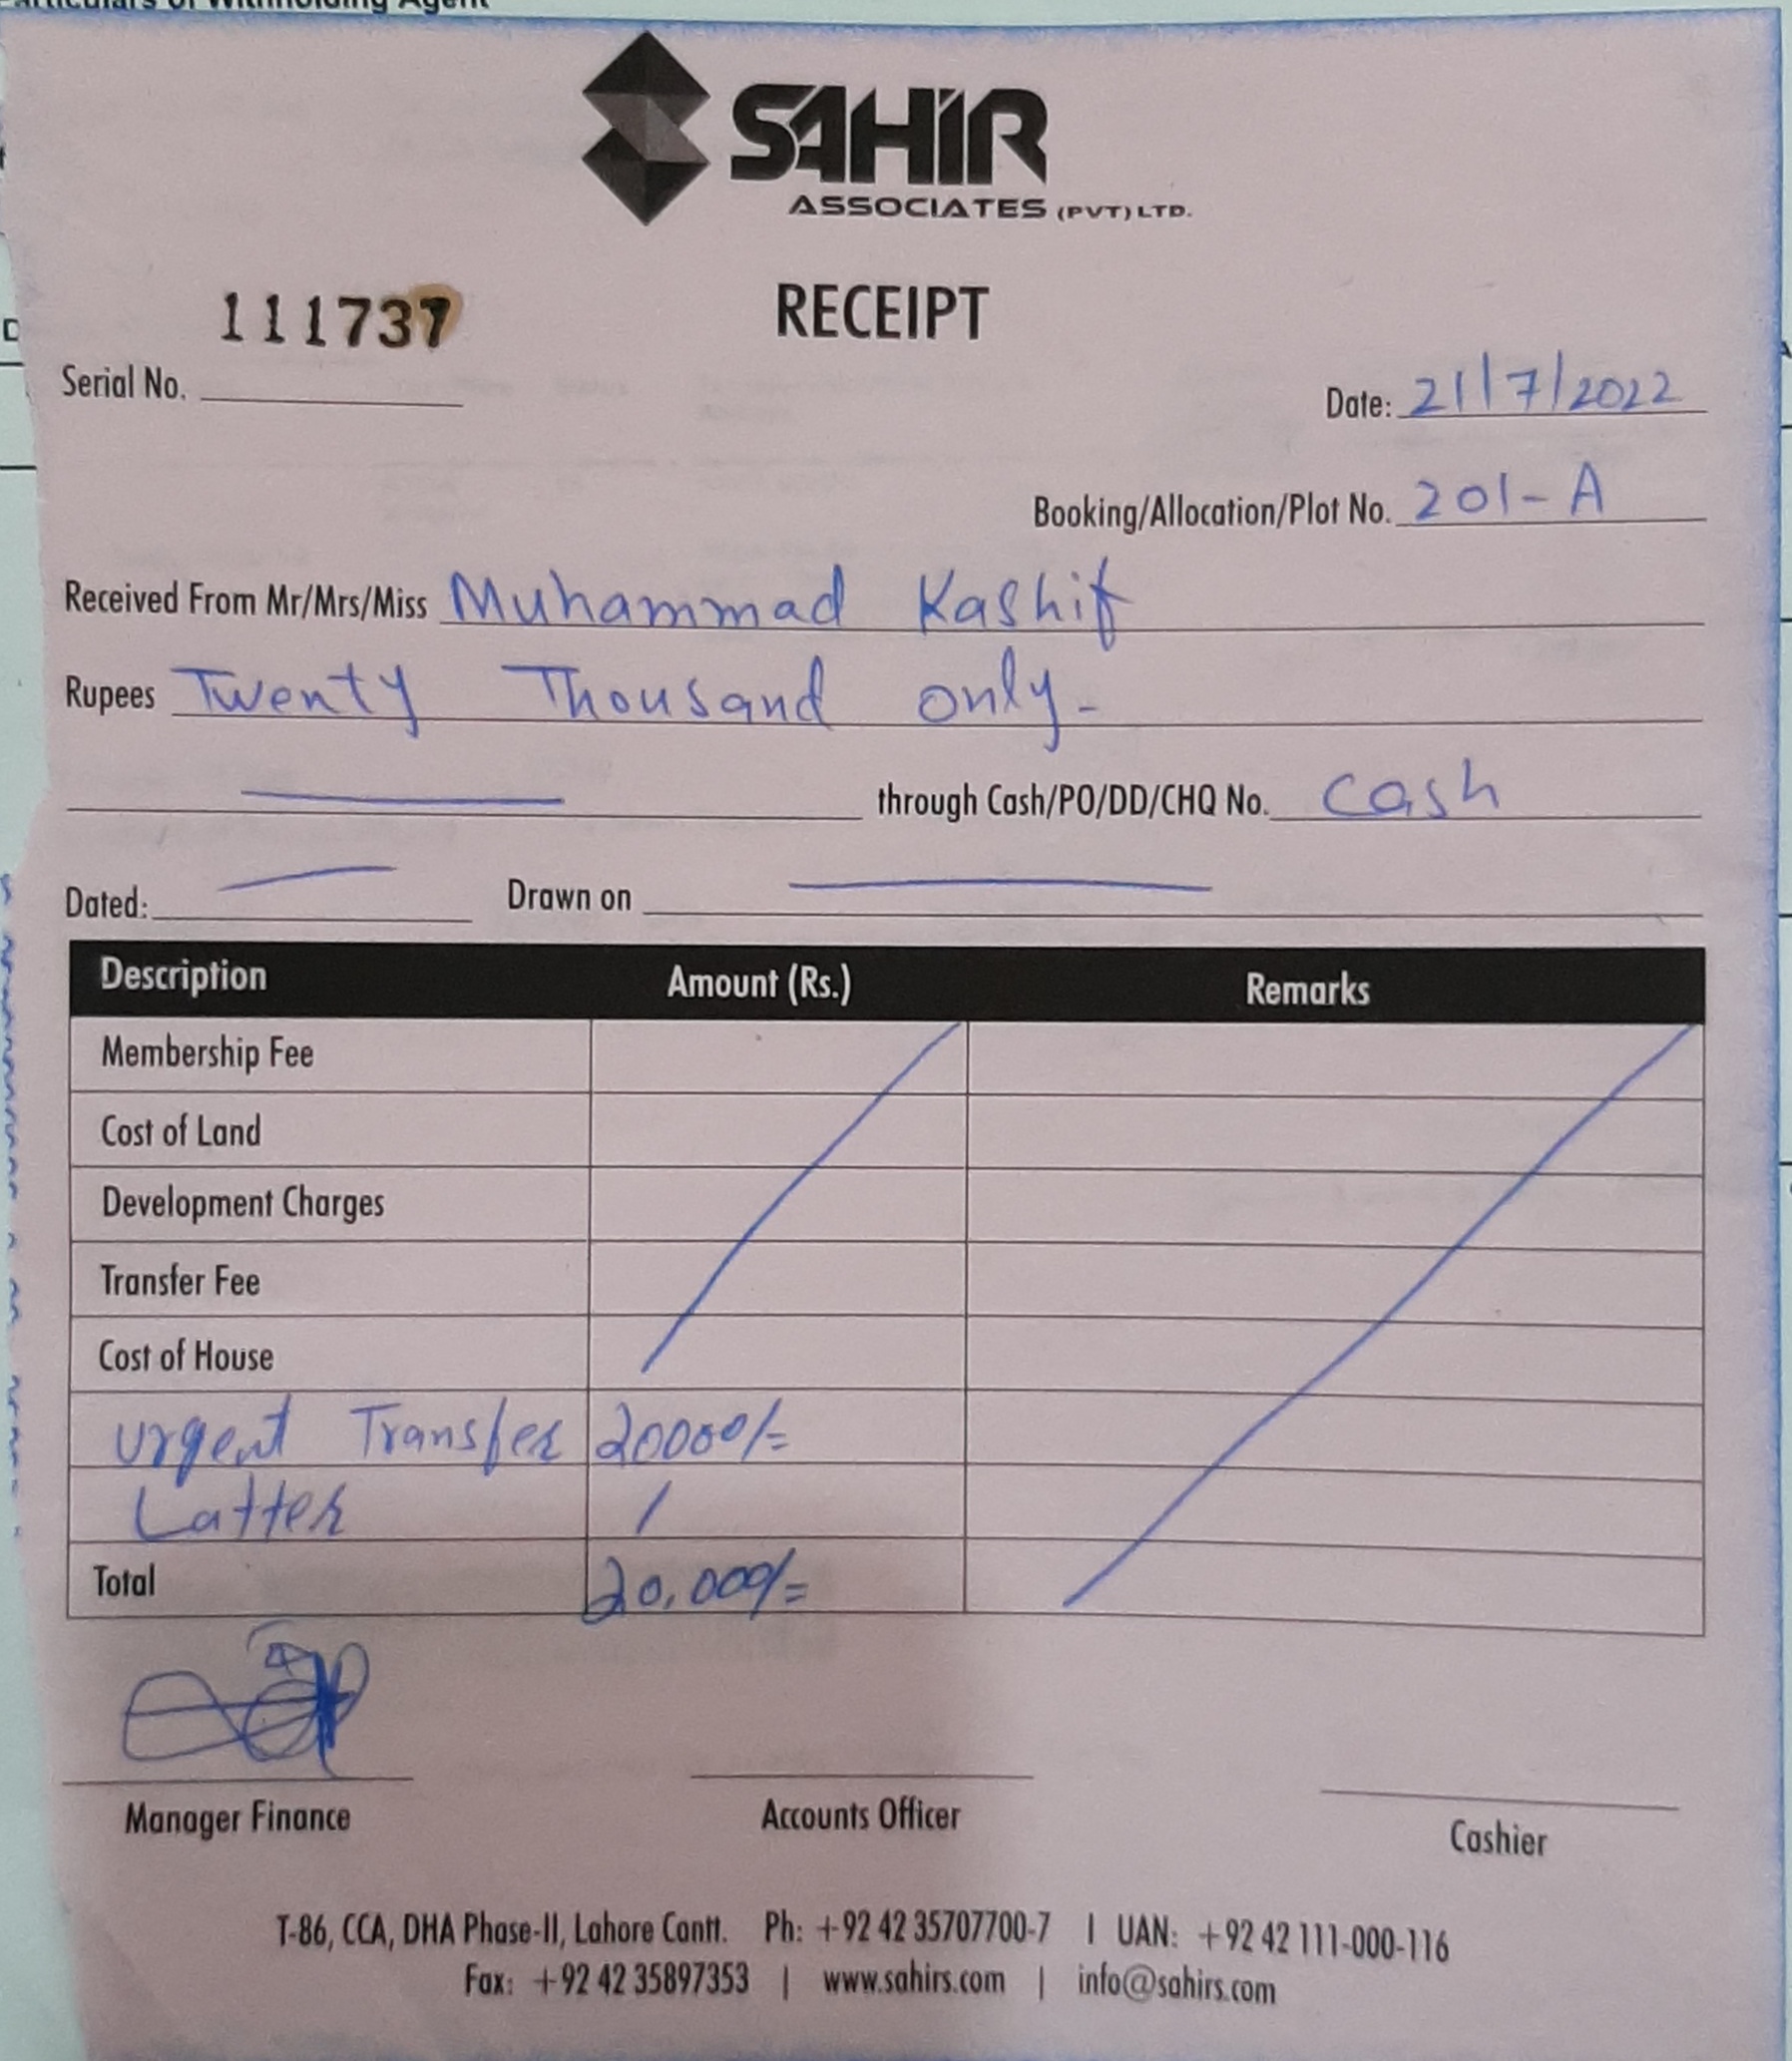 Particulars of Withholding Agent
SAHIR
ASSOCIATES (PVT) LTD.
111737
RECEIPT
Serial No.
Date: 21/7/2022
Booking/Allocation/Plot No. 201-A
Received From Mr/Mrs/Miss Muhammad Kashif
Rupees Twenty Thousand only-
through Cash/PO/DD/CHQ No. Cash
Dated: Drawn on
Description Amount (Rs.) Remarks
Membership Fee
Cost of Land
Development Charges
Transfer Fee
Cost of House
Urgent Transfer 20000/=
Latter /
Total 20,000/=
Manager Finance Accounts Officer Cashier
T-86, CCA, DHA Phase-II, Lahore Cantt. Ph: +92 42 35707700-7 | UAN: +92 42 111-000-116
Fax: +92 42 35897353 | www.sahirs.com | info@sahirs.com